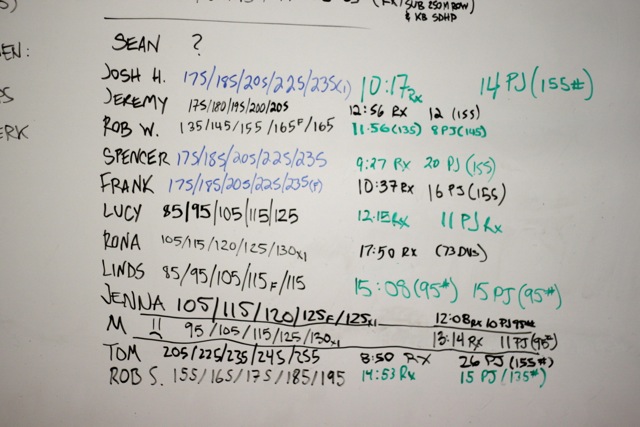 (RX/SUB 250M ROW)
& KB SDHP
EN:
SEAN ?
JOSH H. 175/185/205/225/235(x1) 10:17 Rx 14 PJ (155#)
JEREMY 175/180/195/200/205 12:56 Rx 12 (155)
ERK
ROB W. 135/145/155/165F/165 11:56(135) 8PJ(145)
SPENCER 175/185/205/225/235 9:27 Rx 20 PJ (155)
FRANK 175/185/205/225/235(F) 10:37 Rx 16 PJ (155)
LUCY 85/95/105/115/125 12:15 Rx 11 PJ Rx
RONA 105/115/120/125/130x1 17:50 Rx (73 DUs)
LINDS 85/95/105/115F/115 15:08 (95#) 15 PJ (95#)
JENNA 105/115/120/125F/125x1 12:08 Rx 10 PJ 95#
M !! 95/105/115/125/130x1 13:14 Rx 11 PJ (95#)
TOM 205/225/235/245/255 8:50 Rx 26 PJ (155#)
ROB S. 155/165/175/185/195 14:53 Rx 15 PJ (135#)